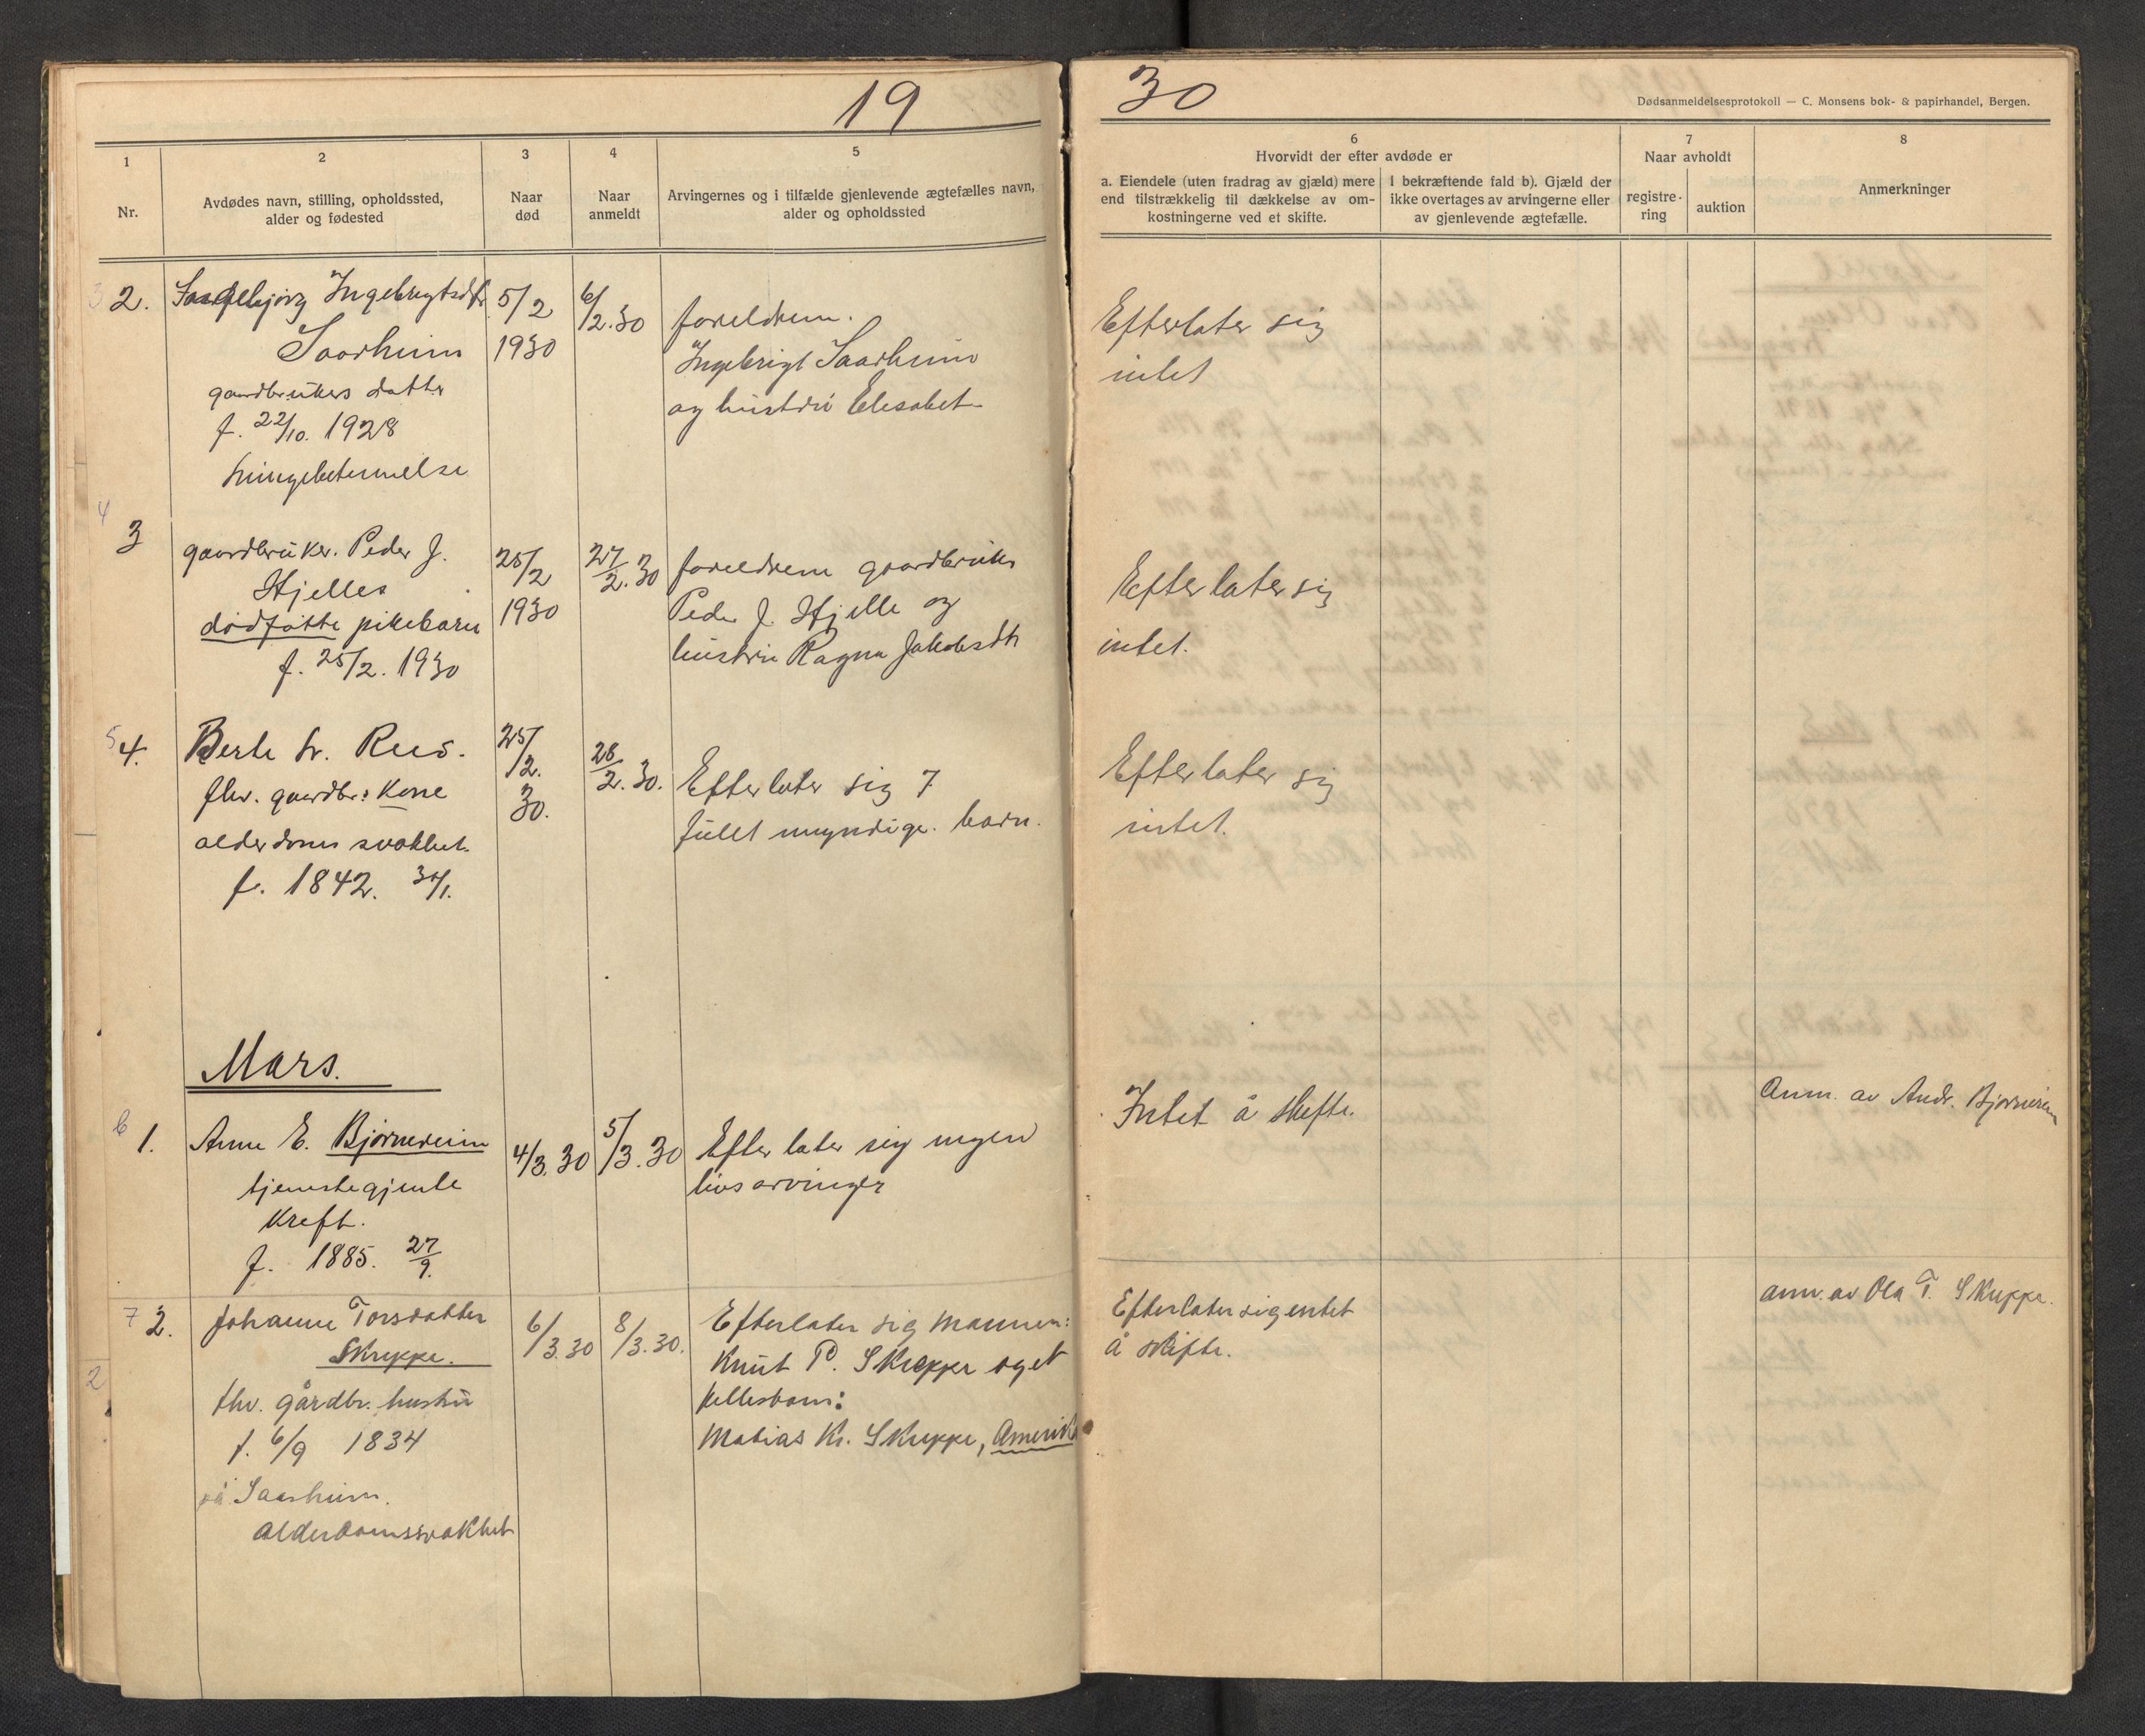 19
30
Dødsanmeldelsesprotokoll — C. Monsens bok- & papirhandel, Bergen.
1
Nr.
2
Avdødes navn, stilling, opholdssted,
alder og fødested
3
Naar
død
4
Naar
anmeldt
5
Arvingernes og i tilfælde gjenlevende ægtefælles navn,
alder og opholdssted
6
Hvorvidt der efter avdøde er
a. Eiendele (uten fradrag av gjæld) mere
end tilstrækkelig til dækkelse av om-
kostningerne ved et skifte.
I bekræftende fald b). Gjæld der
ikke overtages av arvingerne eller
av gjenlevende ægtefælle.
7
Naar avholdt
registre-
ring
auktion
8
Anmerkninger
3 2.
Ingebrigtsdtr
Saarheim
gaardbrukers datter
f. 22/10. 1928
lungebetennelse
5/2
1930
6/2.30
foreldrene.
Ingebrigt Saarheim
og hustru Elesabet
Efterlater sig
intet
4 3
gaardbruker. Peder J.
Hjelles
dødføtte pikebarn
f. 25/2. 1930
25/2
1930
27/2.30
foreldrene gaardbruker
Peder J. Hjelle og
hustru Ragna Jakobsdtr
Efterlater sig
intet.
5 4.
Berte Rus.
fhv. gaardbr: Kone
alderdoms svakhet.
f. 1842. 30/1.
25/2.
30.
28/2.30.
Efterlater sig 7
fullt myndige. barn.
Efterlater sig
intet.
Mars.
6 1.
Anne E. Bjørnereim
tjenestegjente
Kreft.
f. 1885. 27/9.
4/3.30
5/3.30
Efterlater sig ingen
livsarvinger
Intet å skifte.
Anm. av Andr. Bjørnereim
7 2.
Johanne Torsdatter
Skreppe.
fhv. gårdbr. hustru
f. 6/9 1834
på Saarheim.
Alderdomssvakhet
6/3.30
8/3.30.
Efterlater sig Mannen:
Knut P. Skreppe og et
fellesbarn:
Matias Kr. Skreppe, Amerika
Efterlater sig entet
å skifte.
anm. av Ola T. Skreppe.
2